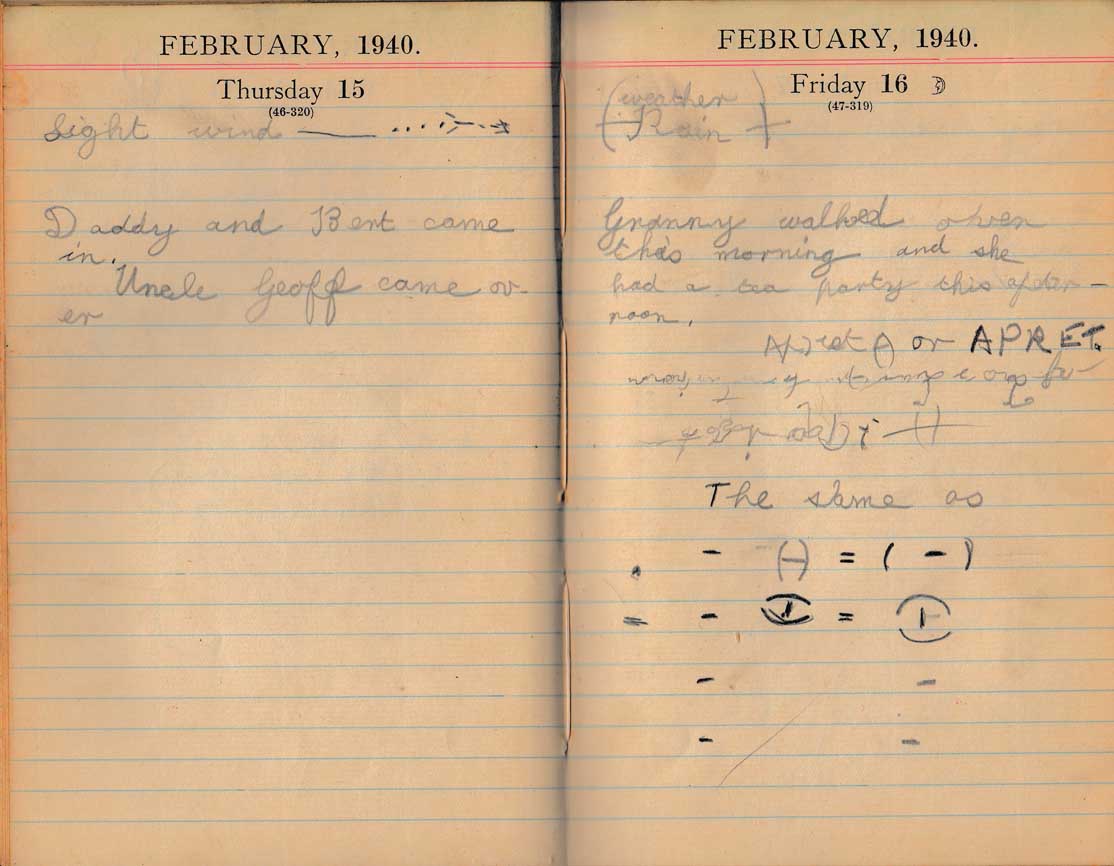 FEBRUARY, 1940.
Thursday 15
(46-320)
Light wind
Daddy and Bert came
in.
Uncle Geoff came ov-
er
FEBRUARY, 1940.
Friday 16
(47-319)
(weather)
Rain
Granny walked over
this morning and she
had a tea party this after-
noon.
or APRET.
The same as
- (-) = (-)
= - =
- -
- -